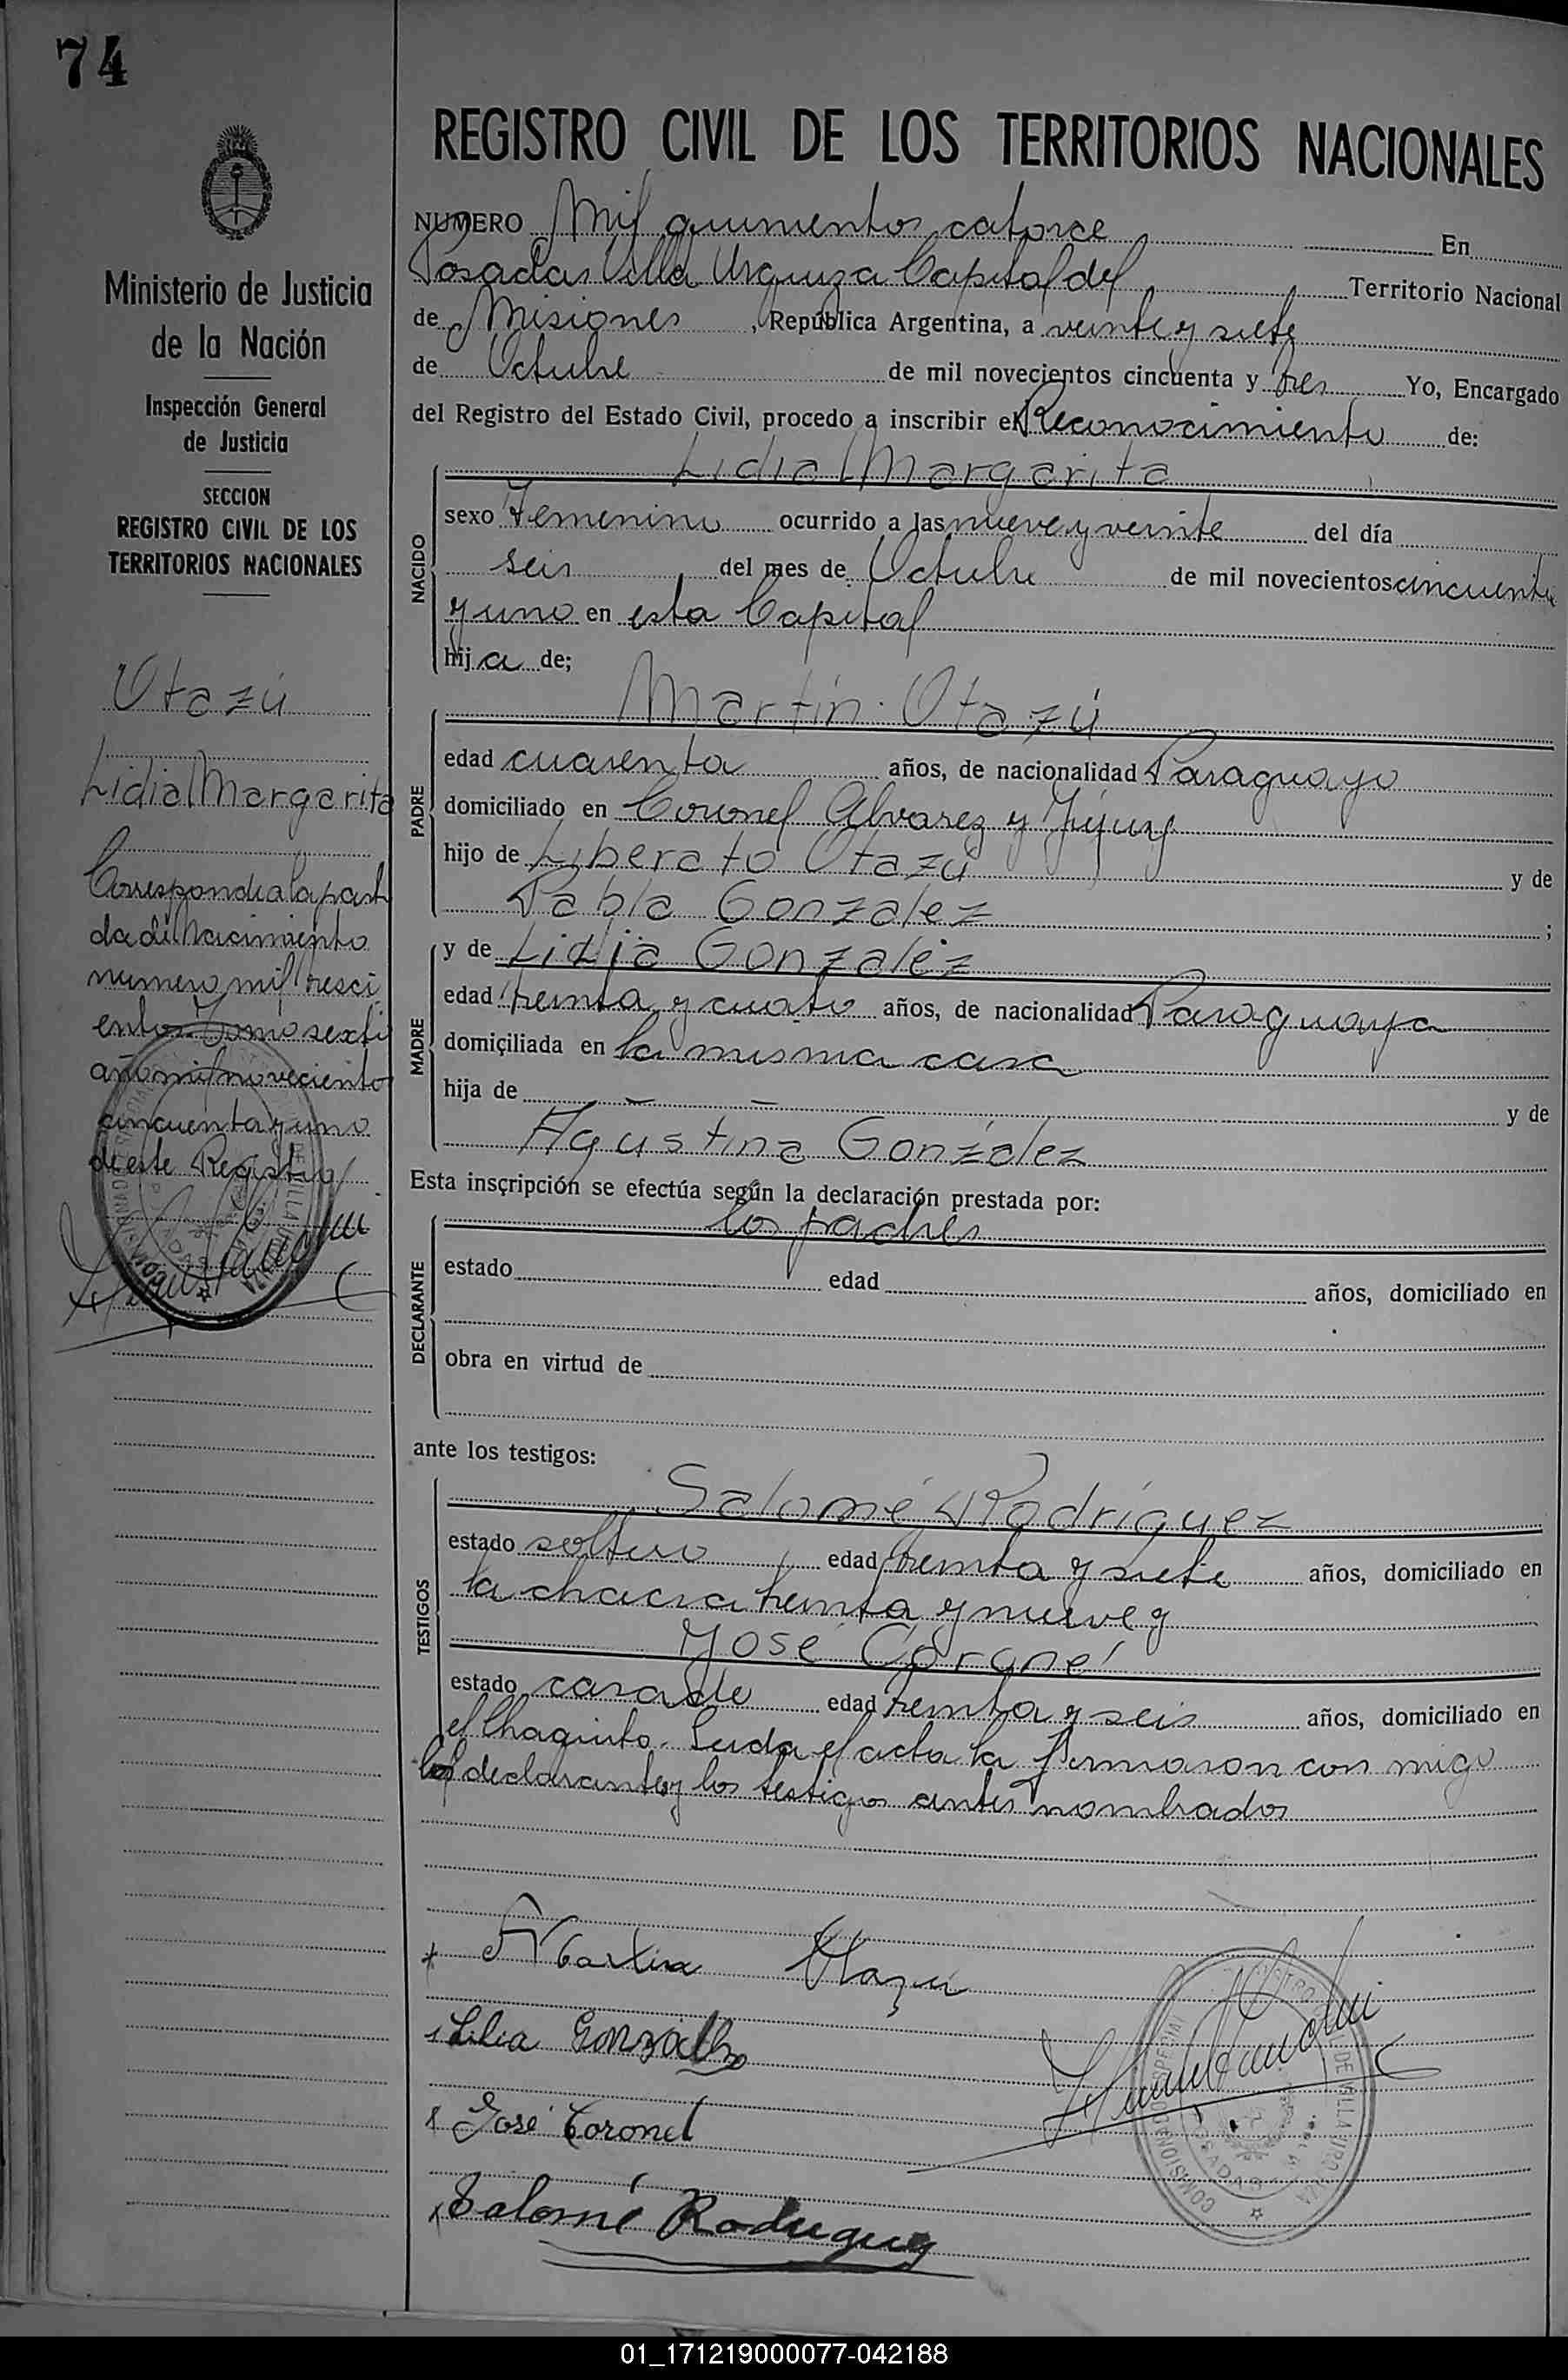 74
Ministerio de Justicia
de la Nación
Inspección General
de Justicia
SECCION
REGISTRO CIVIL DE LOS
TERRITORIOS NACIONALES
Otazú
Lidia Margarita
Corresponde a la parti
da de Nacimiento
numero mil tresci
entos Tomo sexto
año mil novecientos
cincuenta y uno
de este Registro
REGISTRO CIVIL DE LOS TERRITORIOS NACIONALES
NUMERO Mil quinientos catorce En
Posadas Villa Urquiza Capital del Territorio Nacional
de Misiones, República Argentina, a veinte y siete
de Octubre de mil novecientos cincuenta y tres Yo, Encargado
del Registro del Estado Civil, procedo a inscribir el Reconocimiento de:
Lidia Margarita
NACIDO
sexo Femenino ocurrido a las nueve y veinte del día
seis del mes de Octubre de mil novecientos cincuenta
y uno en esta Capital
hija de;
Martín Otazú
PADRE
edad cuarenta años, de nacionalidad Paraguayo
domiciliado en Coronel Alvarez y Jujuy
hijo de Liberato Otazú y de
Pabla Gonzalez ;
y de Lidia Gonzalez
MADRE
edad treinta y cuatro años, de nacionalidad Paraguaya
domiciliada en la misma casa
hija de — — y de
Agustina Gonzalez
Esta inscripción se efectúa según la declaración prestada por:
los padres
DECLARANTE
estado edad años, domiciliado en
obra en virtud de
ante los testigos:
Salomé Rodríguez
TESTIGOS
estado soltero edad treinta y siete años, domiciliado en
la chacra treinta y nueve y
José Coronel
estado casado edad treinta y seis años, domiciliado en
el Chaquito. Leida el acta la firmaron con migo
los declarantes y los testigos antes nombrados
Martin Otazu
Lidia Gonzalez
José Coronel
Salomé Rodriguez
01_171219000077-042188